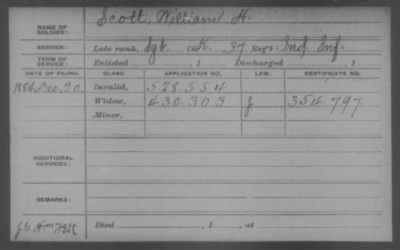 NAME OF SOLDIER: Scott, William H.
SERVICE: Late rank, Sgt Co. K, 37 Reg't Ind. Inf.
TERM OF SERVICE: Enlisted , 1 Discharged , 1
DATE OF FILING. CLASS. APPLICATION NO. LAW. CERTIFICATE NO.
1884 Dec. 20. Invalid, 528.554
Widow, 430.303 J 354.797.
Minor,
ADDITIONAL SERVICES:
REMARKS:
Died , 1 , at